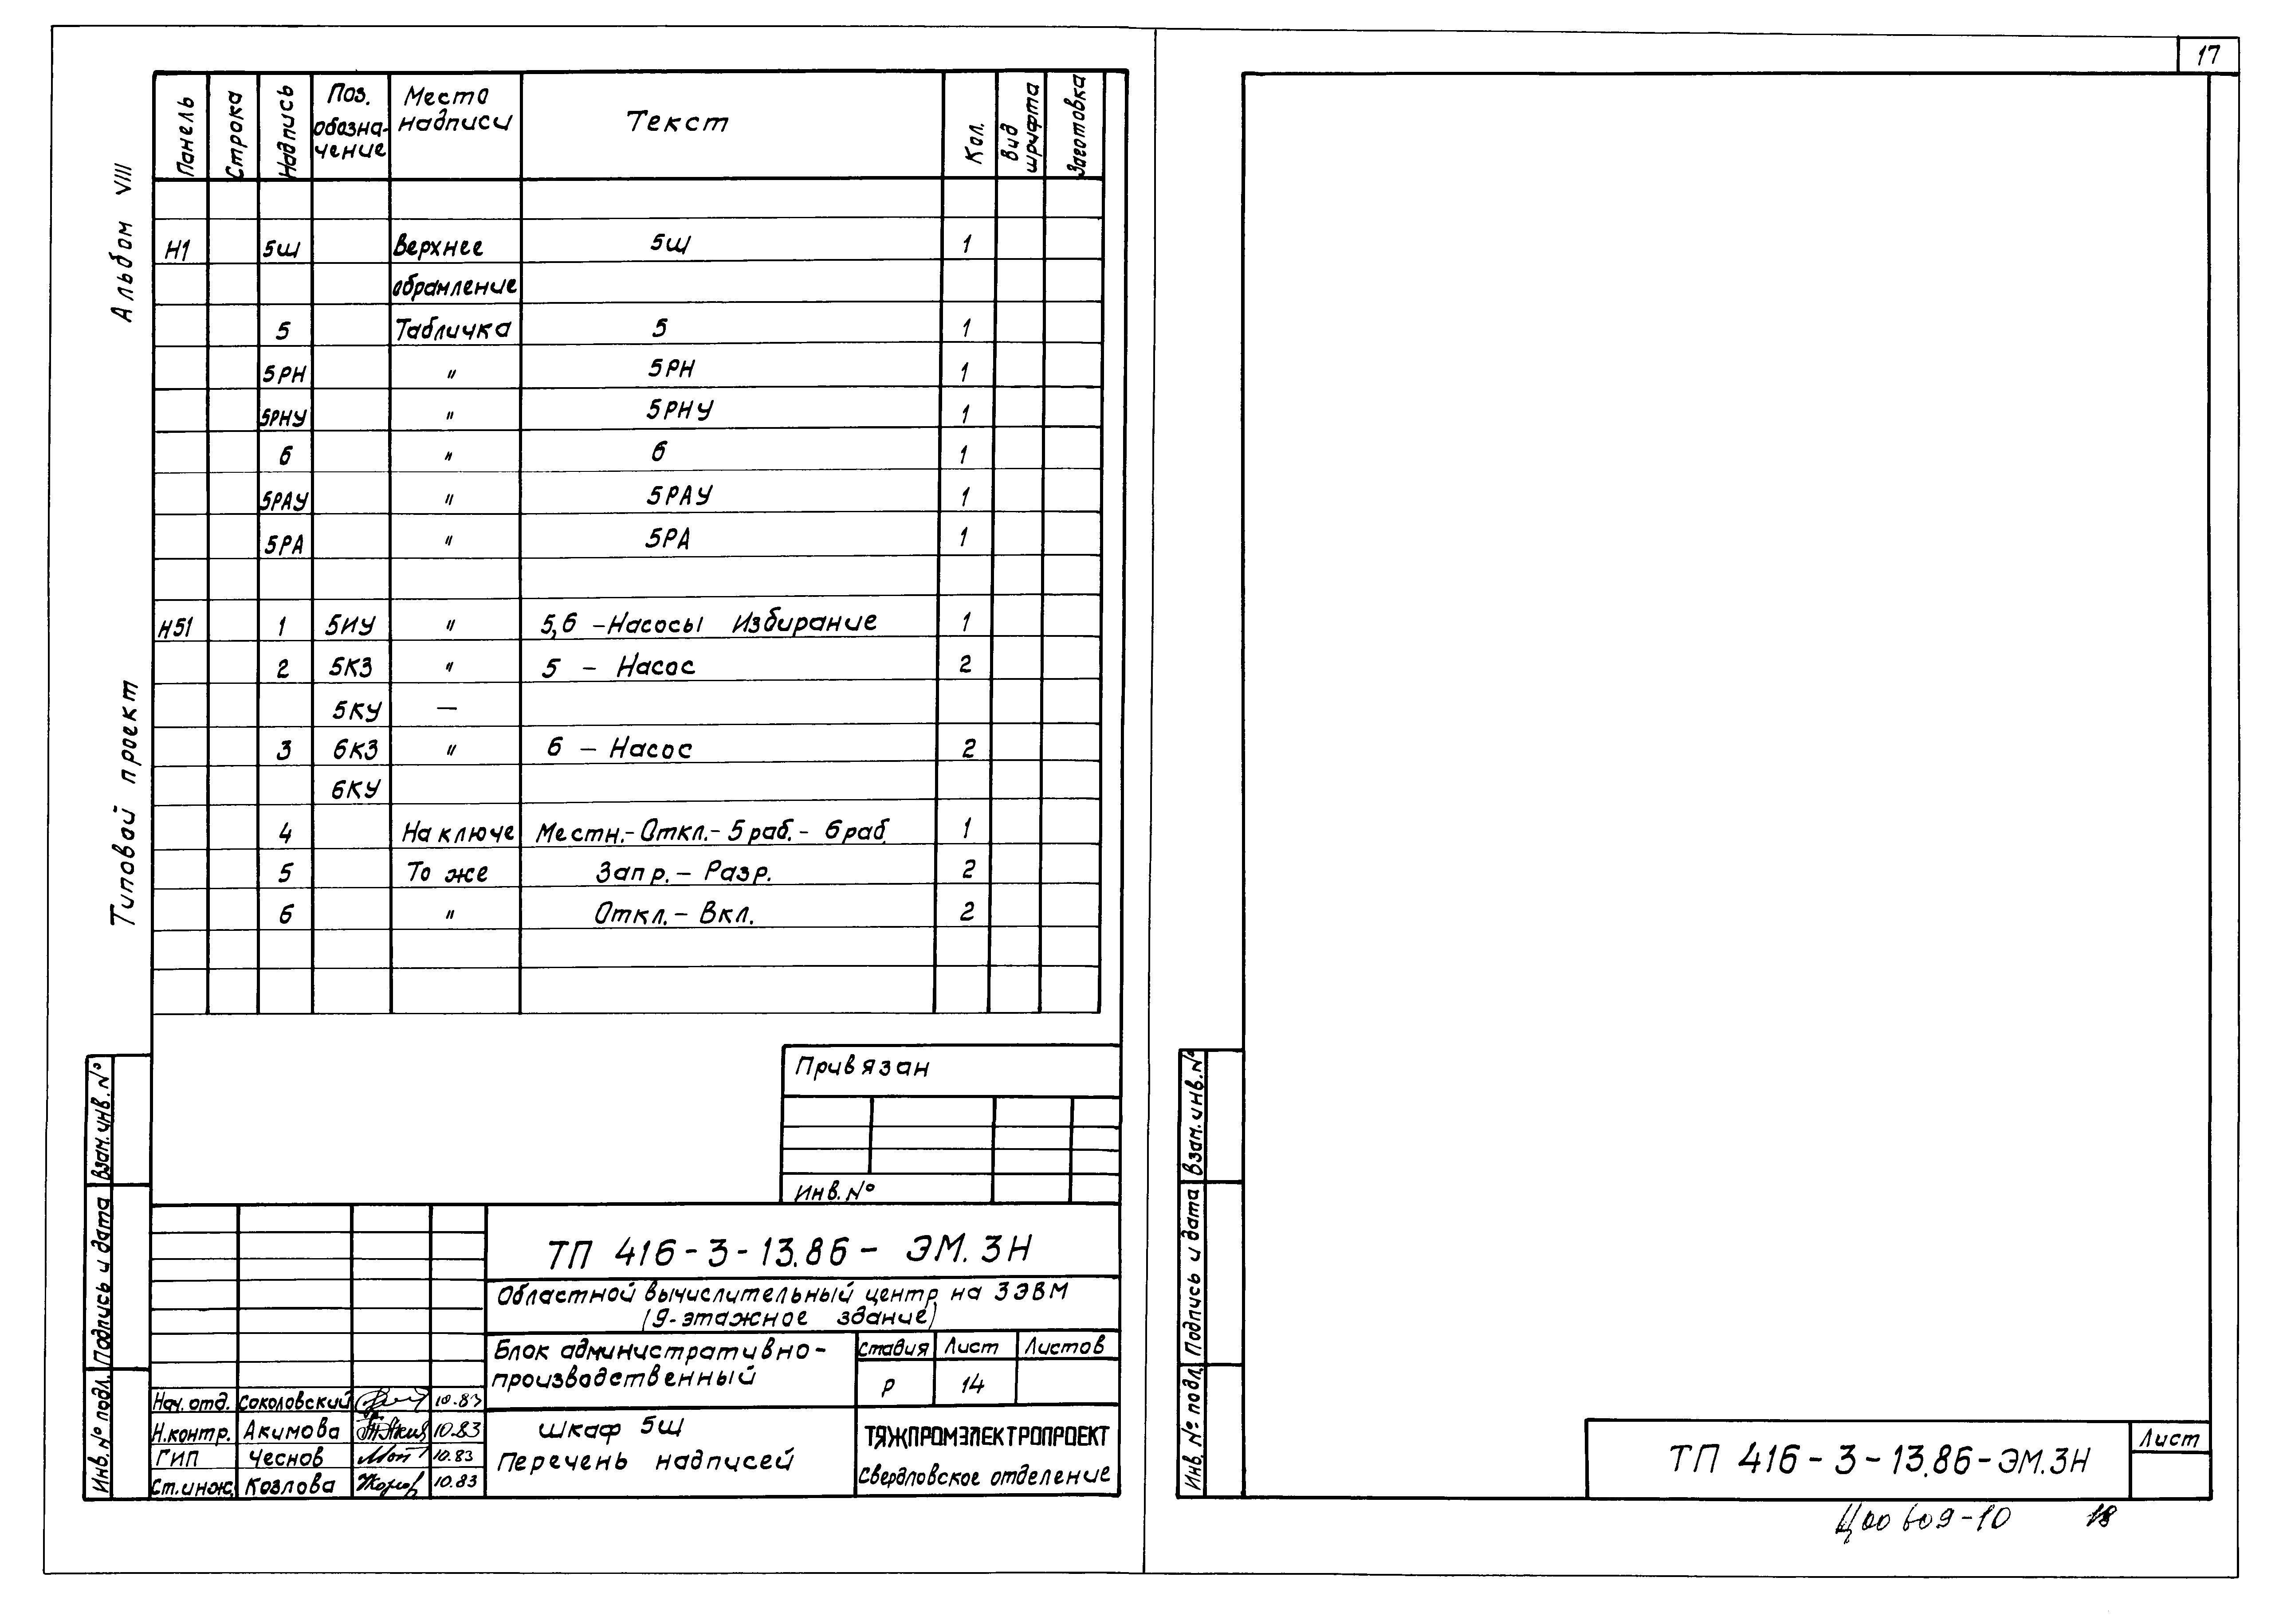 17
Альбом VIII
Типовой проект
Панель Строка Надпись Поз. обозна-чение Место надписи Текст Кол. Вид шрифта Заготовка
Н1 5Ш Верхнее 5Ш 1
обрамление
5 Табличка 5 1
5РН " 5РН 1
5РНУ " 5РНУ 1
6 " 6 1
5РАУ " 5РАУ 1
5РА " 5РА 1
Н51 1 5ИУ " 5,6 - Насосы Избирание 1
2 5КЗ " 5 - Насос 2
5КУ —
3 6КЗ " 6 - Насос 2
6КУ
4 На ключе Местн.- Откл.- 5 раб.- 6 раб. 1
5 То же Запр.- Разр. 2
6 " Откл.- Вкл. 2
Привязан
Инв. №
Взам. инв. №
Подпись и дата
Инв. № подл.
ТП 416-3-13.86- ЭМ.ЗН
Областной вычислительный центр на 3 ЭВМ
(9-этажное здание)
Блок административно-
производственный
Стадия Лист Листов
Р 14
Шкаф 5Ш
Перечень надписей
ТЯЖПРОМЭЛЕКТРОПРОЕКТ
Свердловское отделение
Нач. отд. Соколовский 10.83
Н.контр. Акимова 10.83
ГИП Чеснов 10.83
Ст.инж. Козлова 10.83
Взам. инв. №
Подпись и дата
Инв. № подл.
ТП 416-3-13.86-ЭМ.ЗН
Лист
Ц00609-10 18